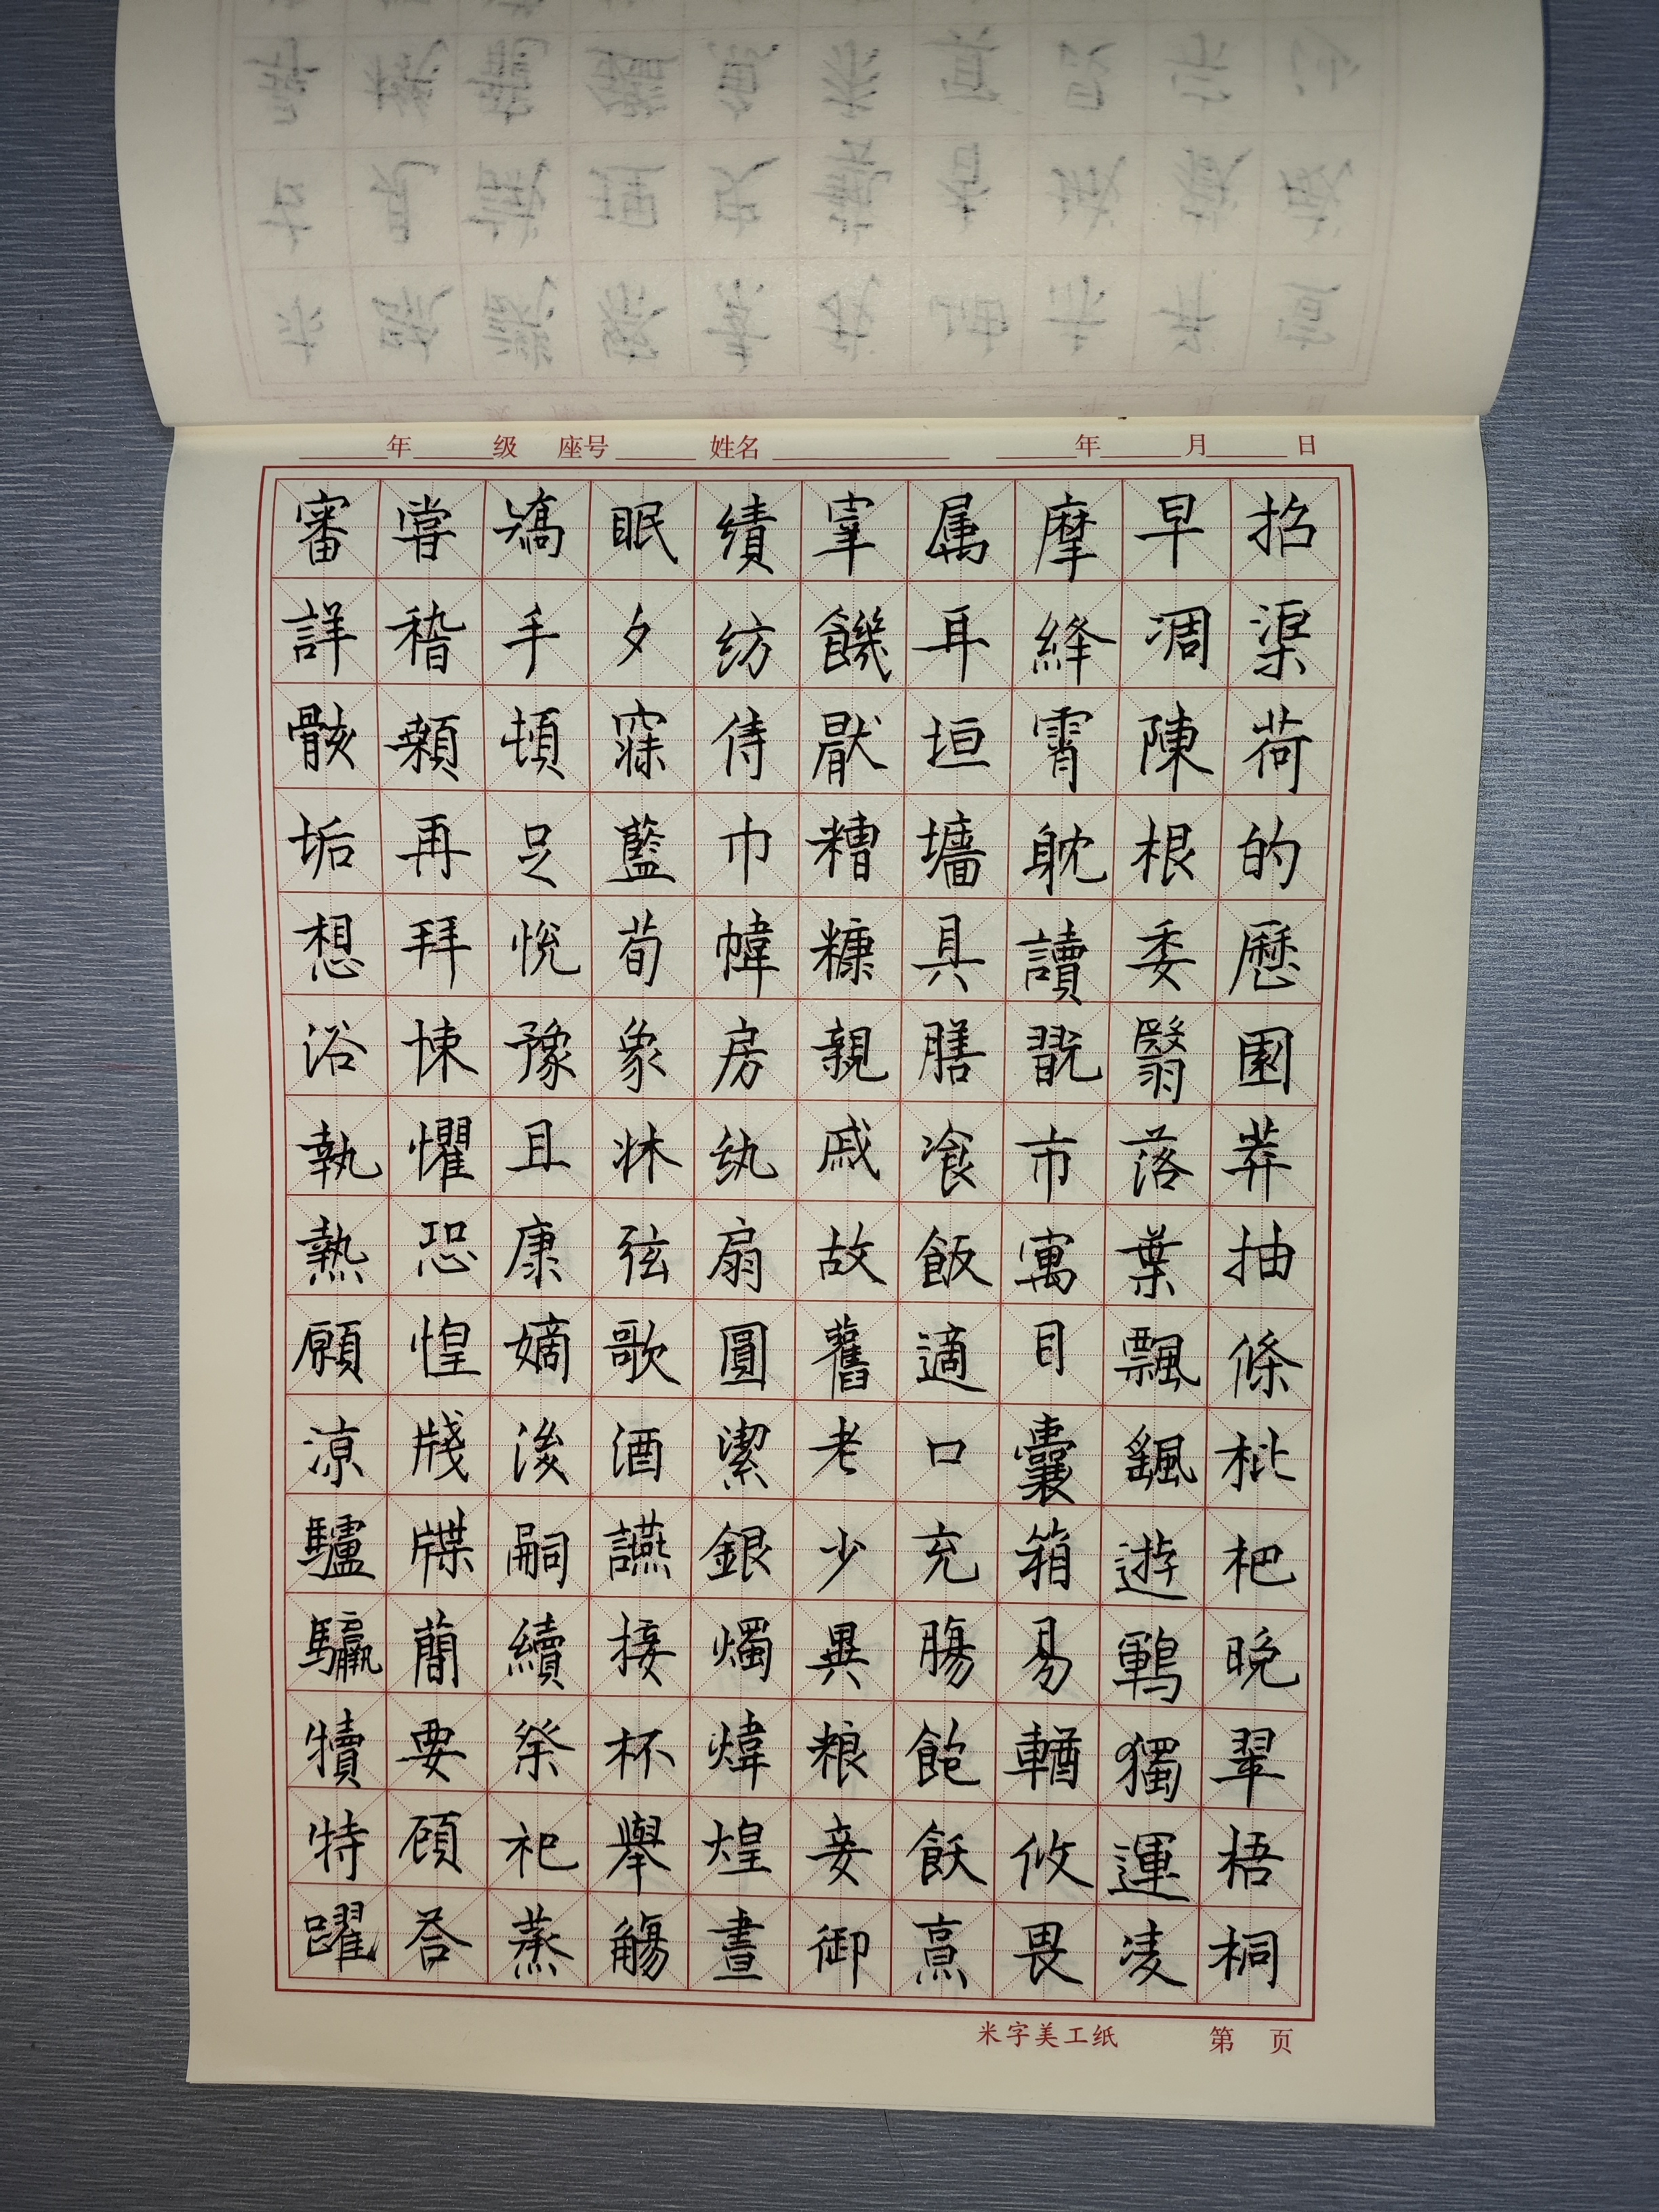 年 级 座号 姓名 年 月 日
招渠荷的歷園莽抽條枇杷晚翠梧桐
早凋陳根委翳落葉飄颻遊鶤獨運凌
摩絳霄耽讀翫市寓目囊箱易輶攸畏
属耳垣墻具膳飡飯適口充腸飽飫烹
宰饑厭糟糠親戚故舊老少異粮妾御
績紡侍巾幃房紈扇圓潔銀燭煒煌晝
眠夕寐藍荀象牀弦歌酒讌接杯舉觴
矯手頓足悅豫且康嫡後嗣續祭祀蒸
嘗稽顙再拜悚懼恐惶牋牒蕳要頋荅
審詳骸垢想浴執熱願涼驢驘犢特躍
米字美工纸 第 页